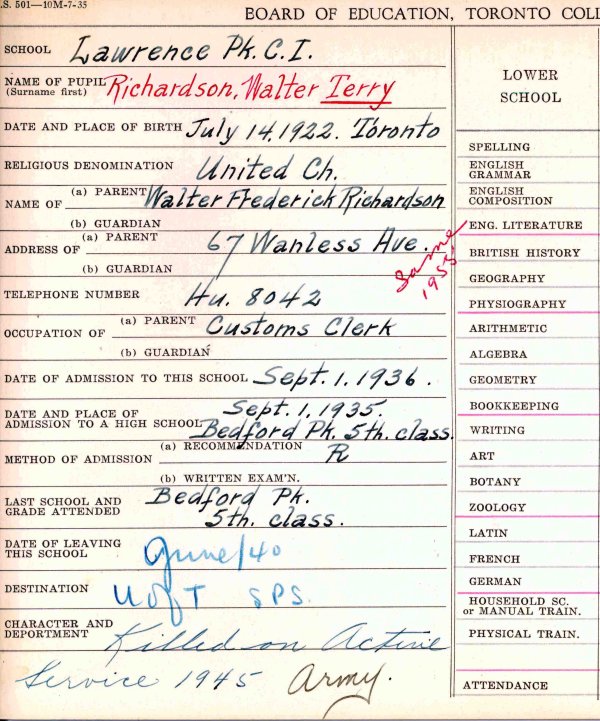 .S. 501—10M-7-35
BOARD OF EDUCATION, TORONTO COLL
SCHOOL Lawrence Pk. C. I.
NAME OF PUPIL Richardson, Walter Terry
(Surname first)
DATE AND PLACE OF BIRTH July 14. 1922. Toronto
RELIGIOUS DENOMINATION United Ch.
NAME OF (a) PARENT Walter Frederick Richardson
(b) GUARDIAN
ADDRESS OF (a) PARENT 67 Wanless Ave.
Same
1953
(b) GUARDIAN
TELEPHONE NUMBER Hu. 8042
OCCUPATION OF (a) PARENT Customs Clerk
(b) GUARDIAN
DATE OF ADMISSION TO THIS SCHOOL Sept. 1. 1936.
DATE AND PLACE OF Sept. 1. 1935.
ADMISSION TO A HIGH SCHOOL Bedford Pk. 5th. class.
METHOD OF ADMISSION (a) RECOMMENDATION R
(b) WRITTEN EXAM'N.
LAST SCHOOL AND Bedford Pk.
GRADE ATTENDED 5th. class.
DATE OF LEAVING
THIS SCHOOL June/40
DESTINATION U of T SPS.
CHARACTER AND
DEPORTMENT Killed on Active
Service 1945 Army.
LOWER
SCHOOL
SPELLING
ENGLISH
GRAMMAR
ENGLISH
COMPOSITION
ENG. LITERATURE
BRITISH HISTORY
GEOGRAPHY
PHYSIOGRAPHY
ARITHMETIC
ALGEBRA
GEOMETRY
BOOKKEEPING
WRITING
ART
BOTANY
ZOOLOGY
LATIN
FRENCH
GERMAN
HOUSEHOLD SC.
or MANUAL TRAIN.
PHYSICAL TRAIN.
ATTENDANCE